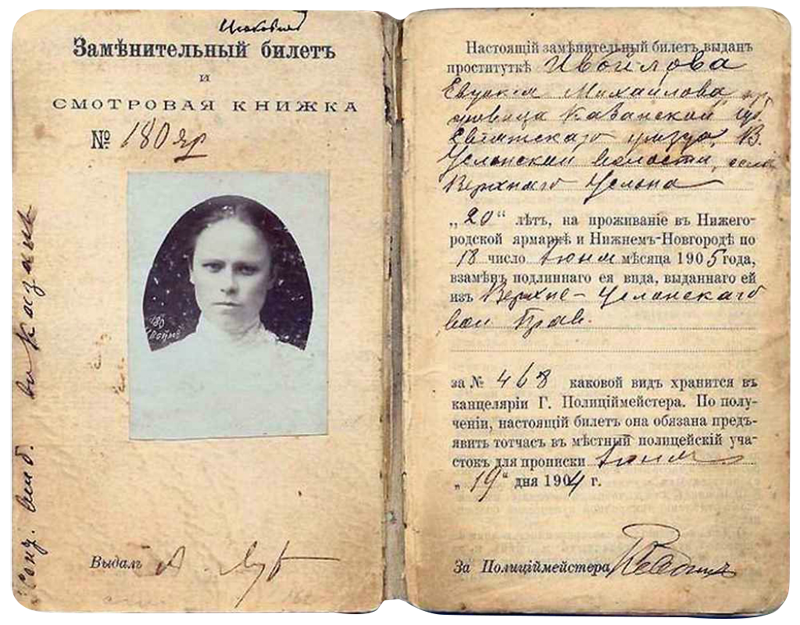 Замѣнительный билетъ
и
СМОТРОВАЯ КНИЖКА
№ 180 яр
въ Казань
Выдалъ
Настоящій замѣнительный билетъ выданъ
проституткѣ Ивойлова
Евдокія Михайлова
Казанской
уѣзда, В.
Услонской волости, села
Верхняго Услона
„20“ лѣтъ, на проживаніе въ Нижего-
родской ярмаркѣ и Нижнемъ-Новгородѣ по
18 число Іюня мѣсяца 1905 года,
взамѣнъ подлиннаго ея вида, выданнаго ей
изъ Верхне-Услонскаго
вол Прав.
за № 468 каковой видъ хранится въ
канцеляріи Г. Полиціймейстера. По полу-
ченіи, настоящій билетъ она обязана предъ-
явить тотчасъ въ мѣстный полицейскій уча-
стокъ для прописки Іюня
„19“ дня 1904 г.
За Полиціймейстера